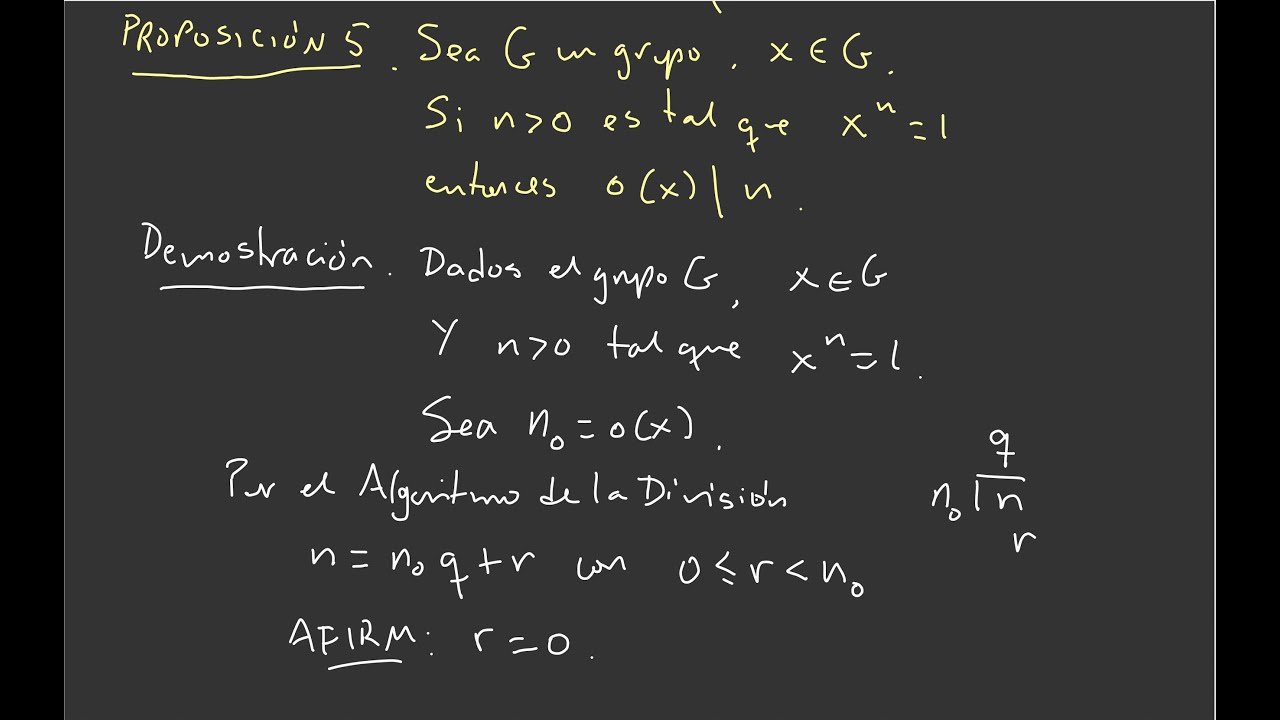 PROPOSICIÓN 5. Sea G un grupo, x ∈ G.
Si n>0 es tal que xⁿ = 1
entonces o(x) | n.
Demostración. Dados el grupo G, x ∈ G
Y n>0 tal que xⁿ = 1.
Sea n₀ = o(x).
Por el Algoritmo de la División
n = n₀ q + r con 0 ≤ r < n₀
q
n₀ | n
r
AFIRM: r = 0.